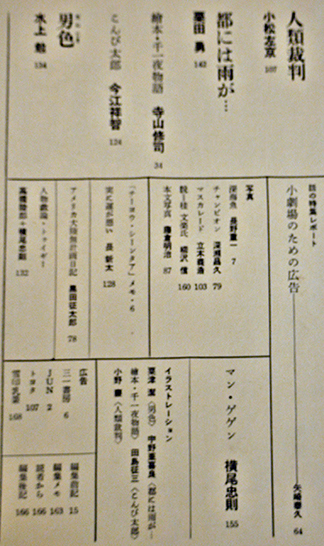 話の特集レポート
小劇場のための広告
矢崎泰久 64
人類裁判
小松左京 107
都には雨が…
栗田勇 142
絵本・千一夜物語 寺山修司 34
こんぴ太郎 今江祥智 124
男色
水上勉 134
写真
深海魚 長野重一 7
チャンピオン 深瀬昌久 79
マスカレード 立木義浩 103
脱==檀・文楽氏 細沢信 160
本文写真 藤倉明治 87
「チーヨウ・シーンタア」メモ・6
実に運が悪い 長新太 128
アメリカ大陸無計画日記
黒田征太郎 78
人物戯論・トゥイギー
高橋睦郎+横尾忠則 132
マン・ゲゲン 横尾忠則 155
イラストレーション
粟津潔〈男色〉 宇野亜喜良〈都には雨が…〉
絵本・千一夜物語 田島征三〈こんぴ太郎〉
小野〈人類裁判〉
広告
三一書房 6
JUN 2
トヨタ 107
雪印乳業 168
編集前記 15
編集メモ 163
読者から 166
編集後記 166